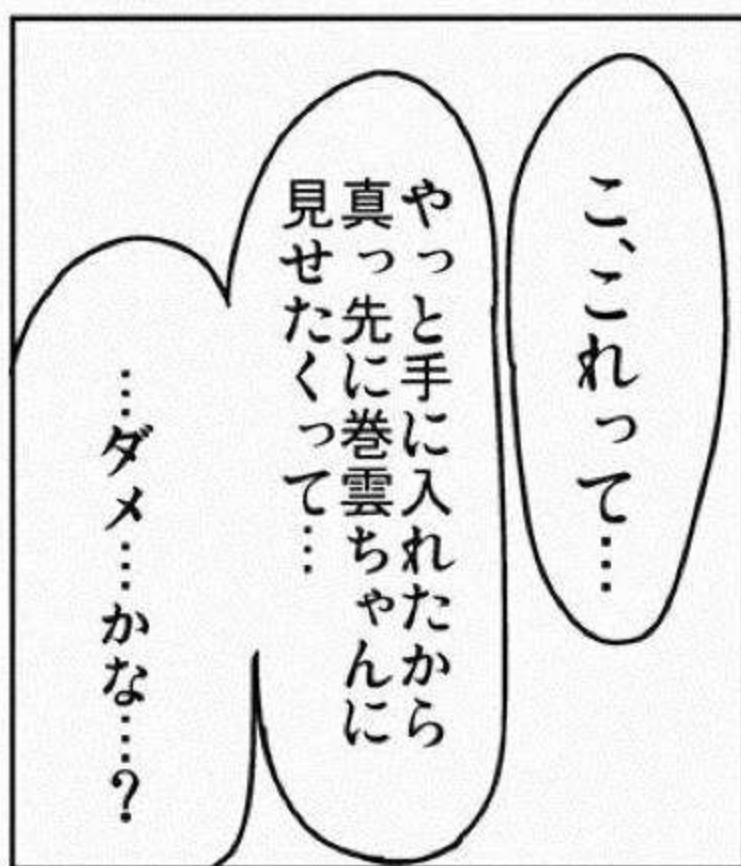 こ、これって…
やっと手に入れたから
真っ先に巻雲ちゃんに
見せたくって…
…ダメ…かな…？